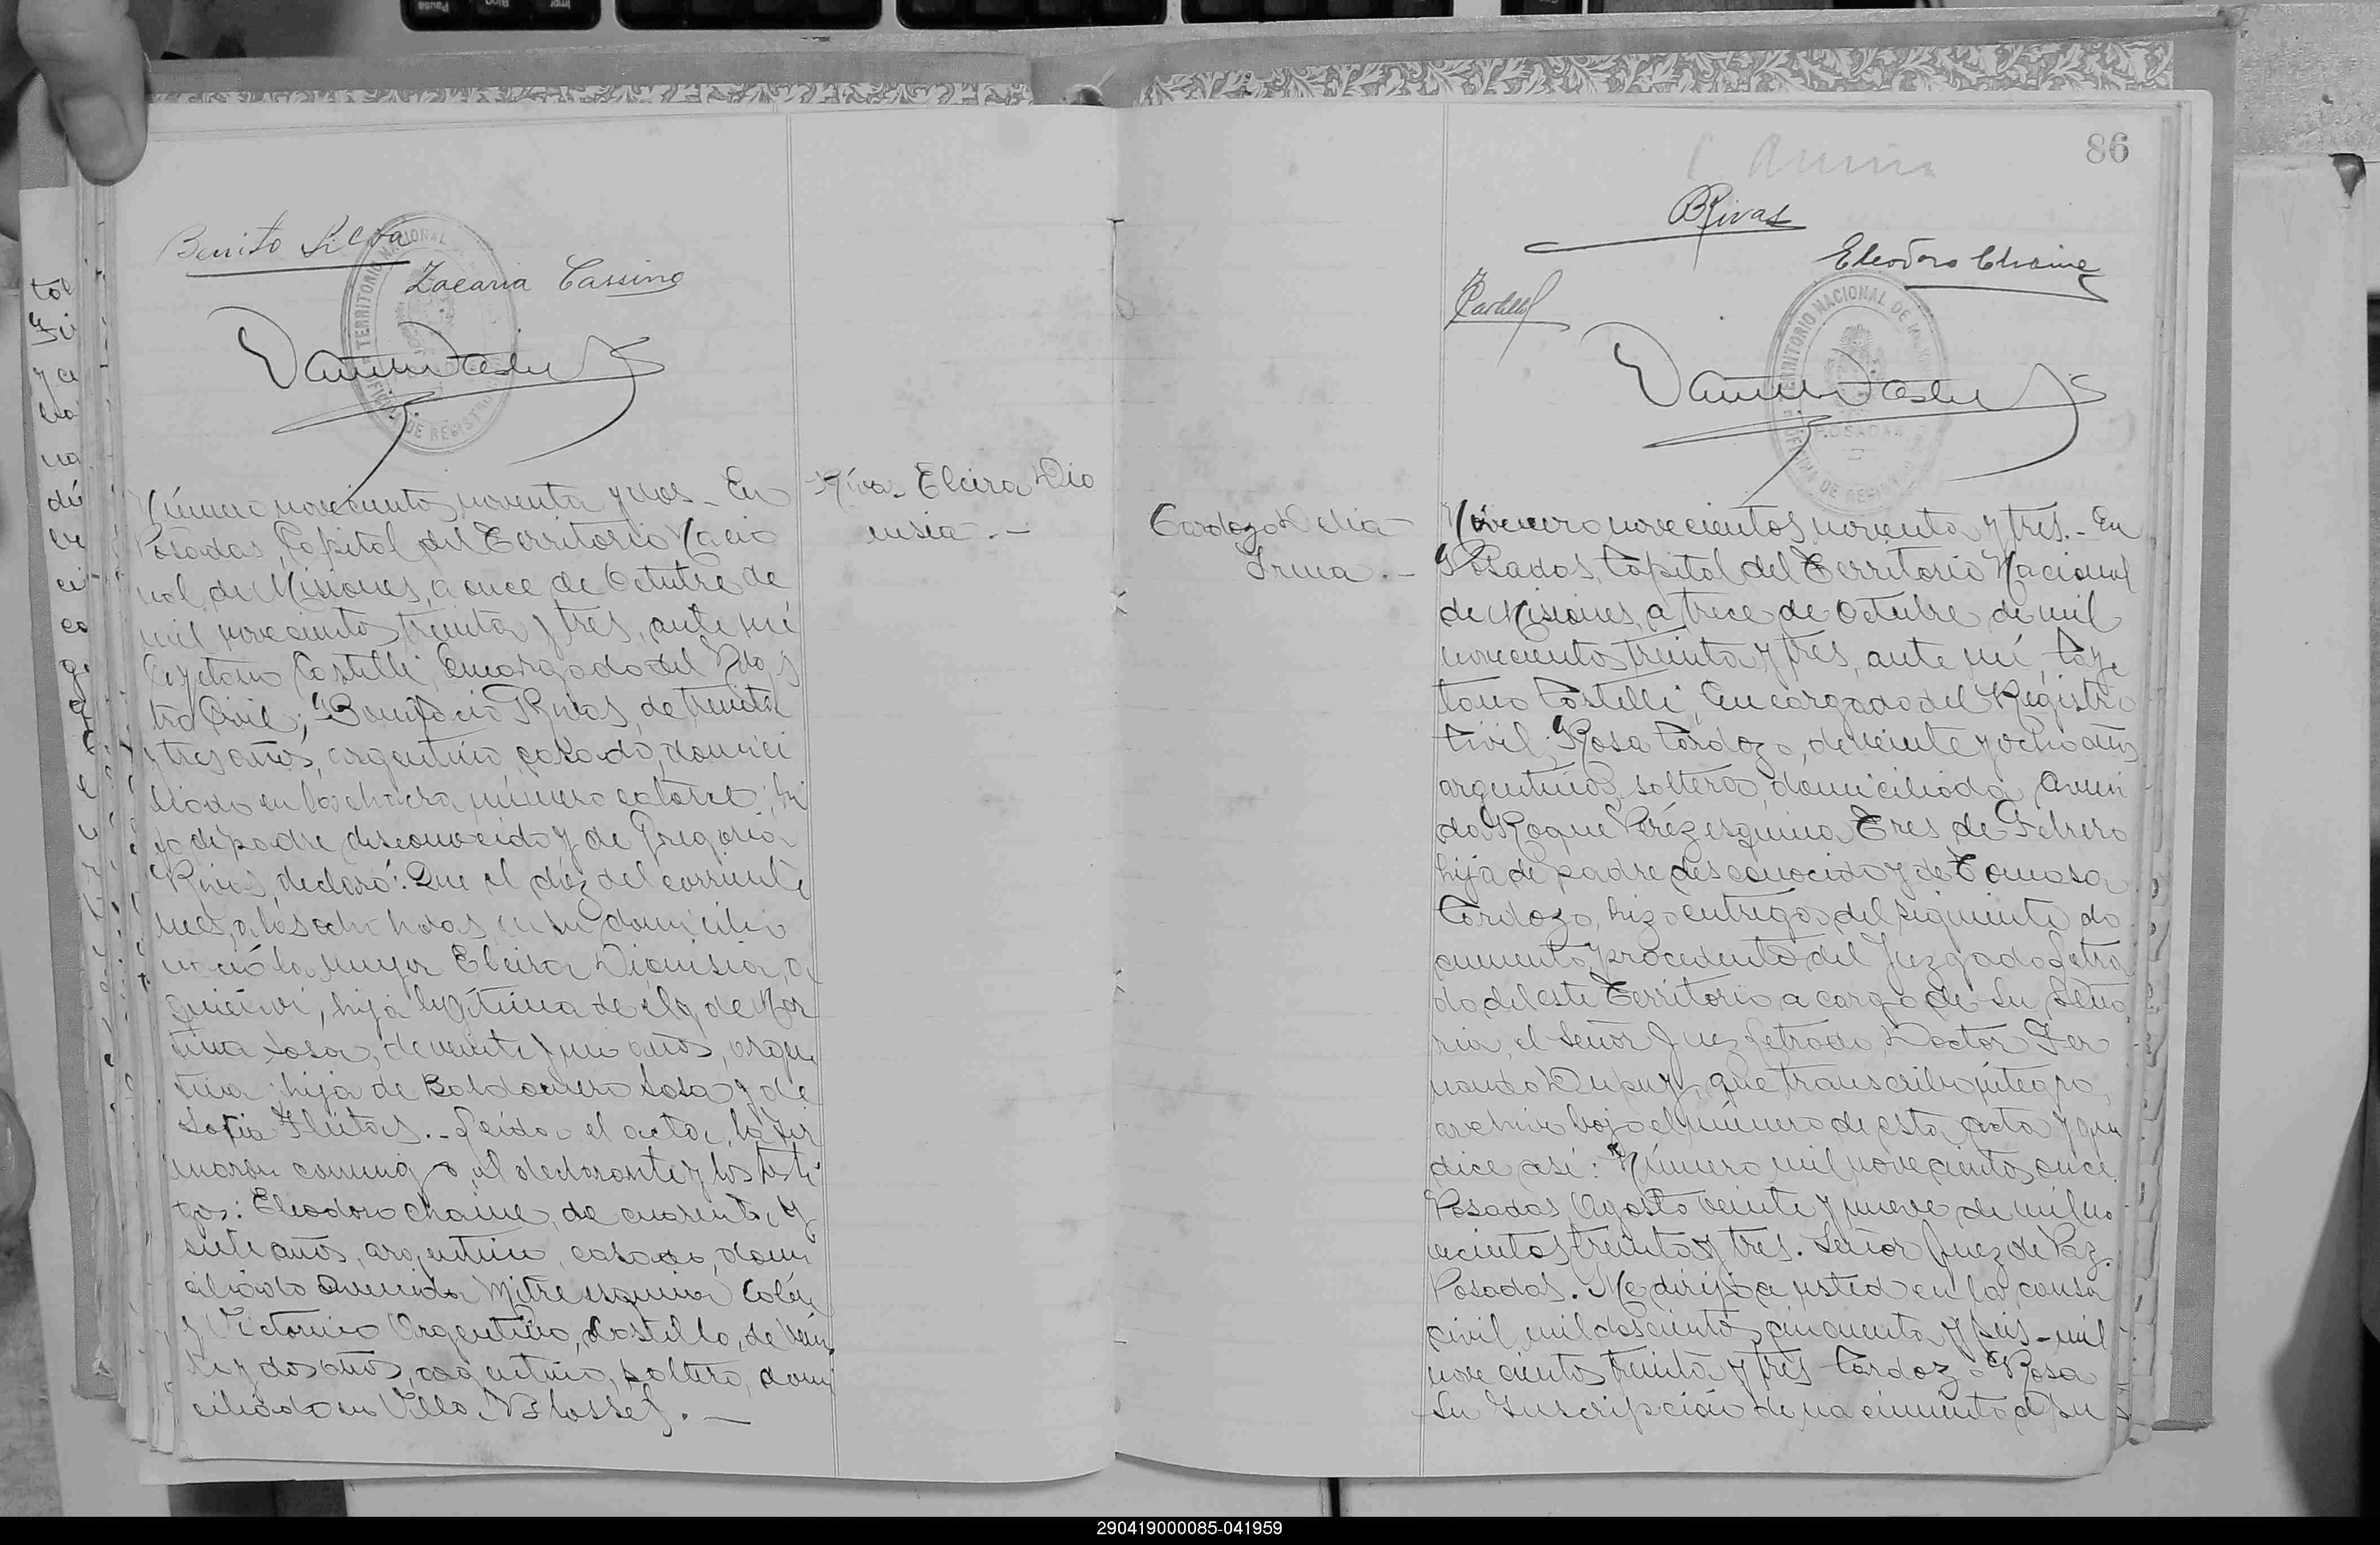 86
Benito Silva
Zacaria Cassino
TERRITORIO NACIONAL
DE REGISTRO
Número novecientos noventa y dos - En
Posadas, Capital del Territorio Nacio
nal de Misiones, a once de Octubre de
mil novecientos treinta y tres, ante mí
Cayetano Castelli, Encargado del Regis
tro Civil, Bonifacio Rivas, de treinta
y tres años, argentino, casado, domici
liado en la chacra número catorce, hi
jo de padre desconocido y de Gregoria
Rivas, declaró: Que el diez del corriente
mes, a las ocho horas, en su domicilio
nació la mujer Elcira Dionisia, a
quien vi, hija legítima de él y de Mar
tina Sosa, de veinte y un años, argen
tina, hija de Baldomero Sosa y de
Sofia Fleitas. - Leída el acta, la fir
maron conmigo, el declarante y los testi
gos: Eleodoro Chaine, de cuarenta y
siete años, argentino, casado, domi
ciliado Avenida Mitre esquina Colón
y Victorino Argentino Castillo, de vein
te y dos años, argentino, soltero, domi
ciliado en Villa Blosset. -
Rivas Elcira Dio
nisia. -
BRivas
Eleodoro Chaine
TERRITORIO NACIONAL DE MISIONES
POSADAS
OFICINA DE REGISTRO
Cardozo Delia
Irma. -
Número novecientos noventa y tres. - En
Posadas, Capital del Territorio Nacional
de Misiones, a trece de Octubre de mil
novecientos treinta y tres, ante mí, Caye
tano Castelli, Encargado del Registro
Civil, Rosa Cardozo, de veinte y ocho años
argentina, soltera, domiciliada Aveni
da Roque Peréz esquina Tres de Febrero
hija de padre desconocido y de Tomasa
Cardozo, hizo entrega del siguiente do
cumento procedente del Juzgado Letra
do del este Territorio a cargo de Su Seño
ria, el señor Juez Letrado, Doctor Fer
nando Dupuy, que transcribo íntegro,
archivo bajo el número de esta acta y que
dice así: "Número mil novecientos once
Posadas Agosto veinte y nueve de mil no
vecientos treinta y tres. Señor Juez de Paz
Posadas. Me dirijo a usted en la causa
civil mil doscientos cincuenta y seis - mil
novecientos treinta y tres Cardozo Rosa
Su Inscripción de nacimiento de su
290419000085-041959